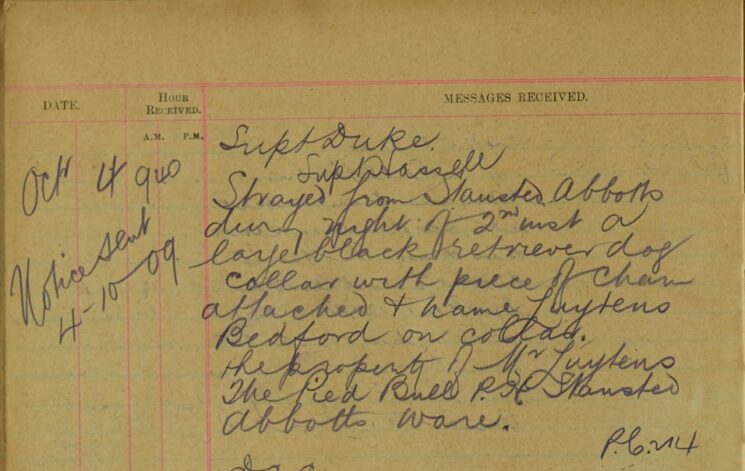 DATE. HOUR RECEIVED. MESSAGES RECEIVED.
A.M. P.M.
Oct 4 940
Notice sent
4-10-09
Supt Duke.
Supt Hassell
Strayed from Stansted Abbotts
during night of 2nd inst a
large black retriever dog
collar with piece of chain
attached & name Luytens
Bedford on collar.
the property of Mr Luytens
The Pied Bull P.H. Stansted
Abbotts Ware.
P.C. 214